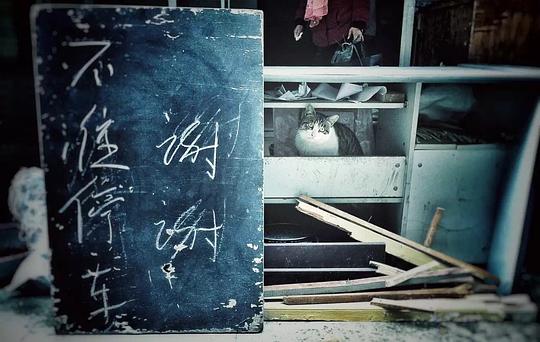 不准停车
谢谢